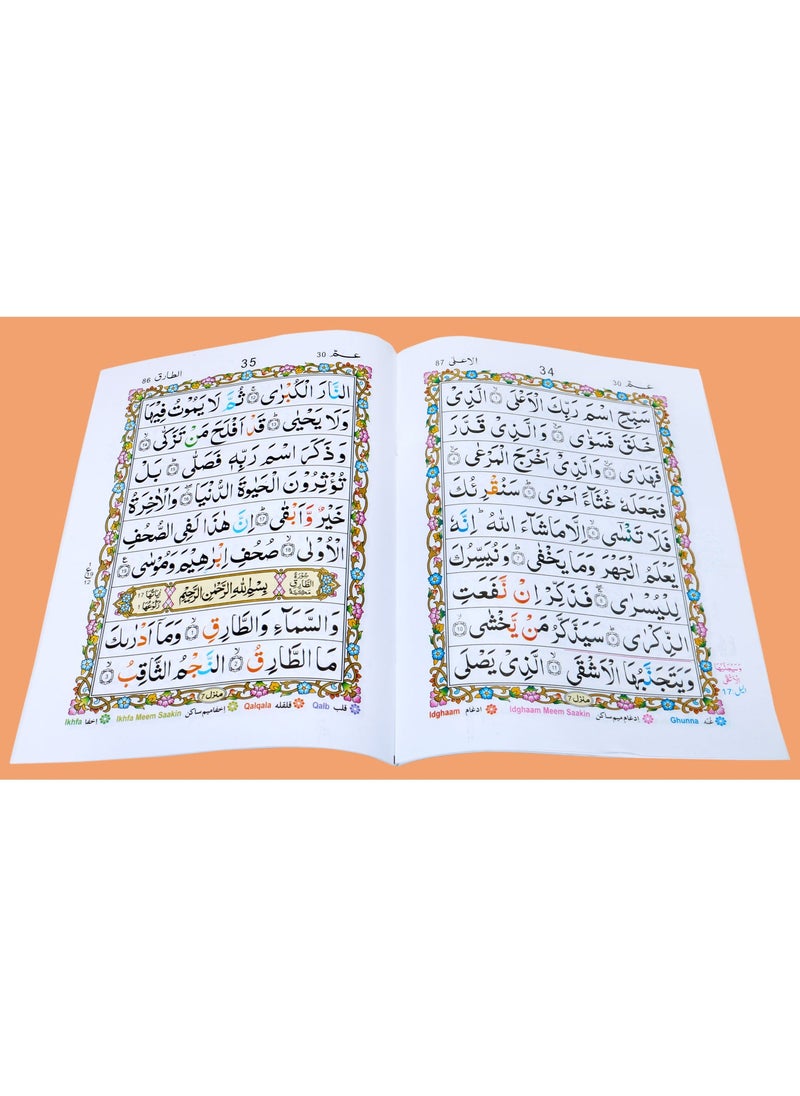 عمّ 30
34
الاعلى 87
سَبِّحِ اسْمَ رَبِّكَ الْاَعْلَى ۙ الَّذِیْ
خَلَقَ فَسَوّٰی ۙ وَالَّذِیْ قَدَّرَ
فَهَدٰی ۙ وَالَّذِیْ اَخْرَجَ الْمَرْعٰی ۙ
فَجَعَلَهٗ غُثَآءً اَحْوٰی ؕ سَنُقْرِئُكَ
فَلَا تَنْسٰی ۙ اِلَّا مَاشَآءَ اللّٰهُ ؕ اِنَّهٗ
یَعْلَمُ الْجَهْرَ وَمَا یَخْفٰی ؕ وَنُیَسِّرُكَ
لِلْیُسْرٰی ۚ فَذَكِّرْ اِنْ نَّفَعَتِ
الذِّكْرٰی ؕ سَیَذَّكَّرُ مَنْ یَّخْشٰی ۙ
وَیَتَجَنَّبُهَا الْاَشْقَی ۙ الَّذِیْ یَصْلَی
منزل 7
Ghunna غنّه
Idghaam Meem Saakin ادغام میم ساکن
Idghaam ادغام
عمّ 30
35
الطارق 86
النَّارَ الْكُبْرٰی ۚ ثُمَّ لَا یَمُوْتُ فِیْهَا
وَلَا یَحْیٰی ؕ قَدْ اَفْلَحَ مَنْ تَزَكّٰی ۙ
وَذَكَرَ اسْمَ رَبِّهٖ فَصَلّٰی ؕ بَلْ
تُؤْثِرُوْنَ الْحَیٰوةَ الدُّنْیَا ۖ وَالْاٰخِرَةُ
خَیْرٌ وَّاَبْقٰی ؕ اِنَّ هٰذَا لَفِی الصُّحُفِ
الْاُوْلٰی ۙ صُحُفِ اِبْرٰهِیْمَ وَمُوْسٰی
سُوْرَةُ الطَّارِقِ مَكِّیَّةٌ بِسْمِ اللّٰهِ الرَّحْمٰنِ الرَّحِیْمِ
وَالسَّمَآءِ وَالطَّارِقِ ۙ وَمَاۤ اَدْرٰىكَ
مَا الطَّارِقُ ۙ النَّجْمُ الثَّاقِبُ ۙ
منزل 7
قلب Qalb
قلقله Qalqala
اخفا میم ساکن Ikhfa Meem Saakin
اخفا Ikhfa